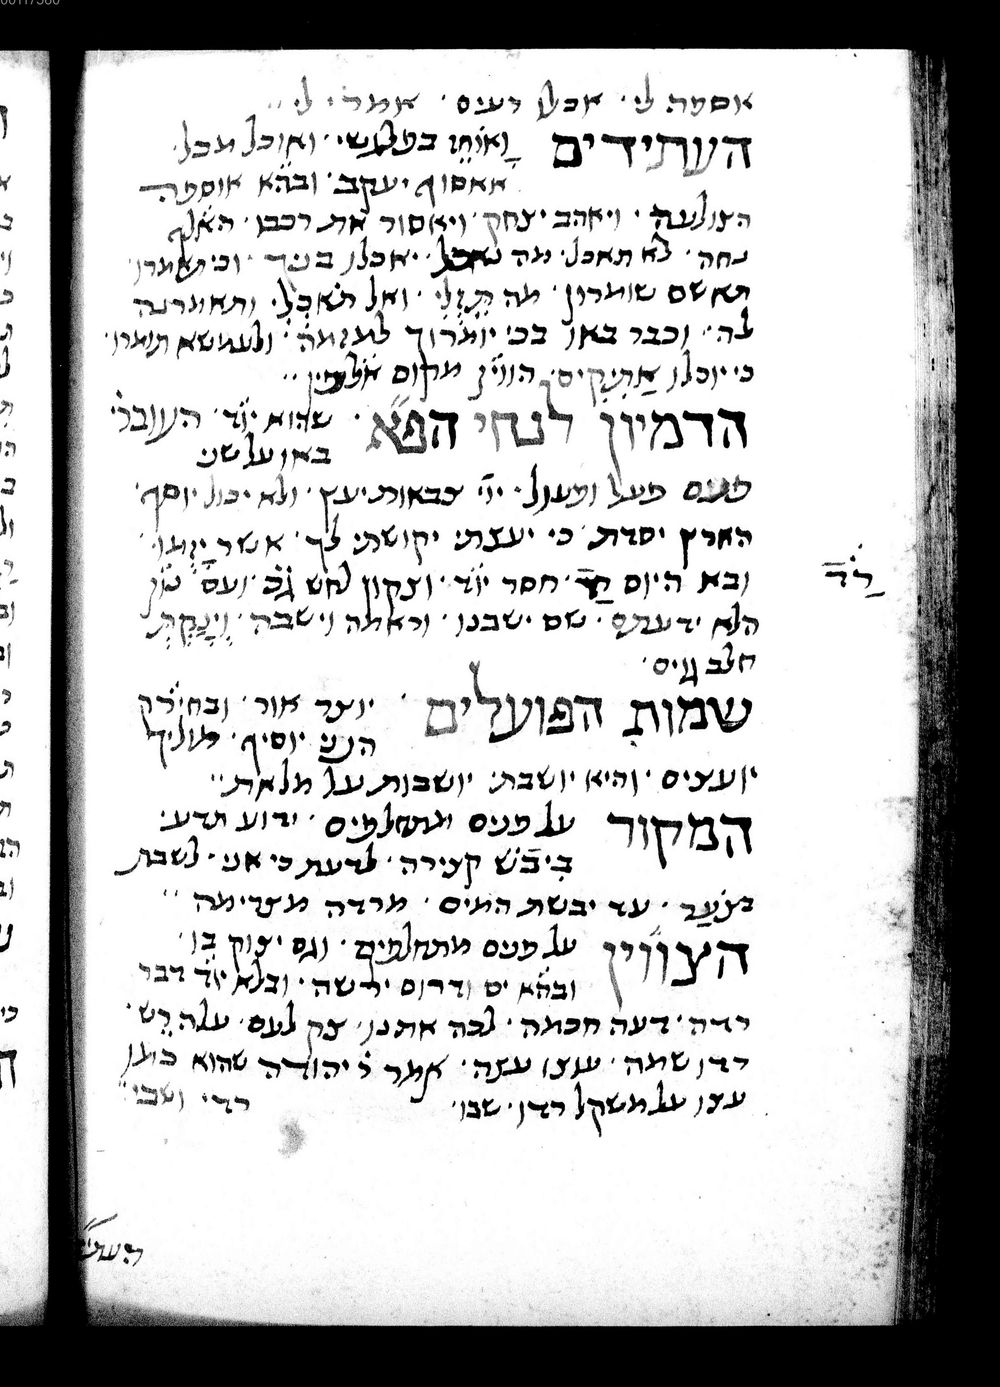 אספה לי · אכלו רעים · אמרי לי ··
העתידים ואוחז בפלגשי · ואוכל מכל ·
אאסוף יעקב · ובהא אוספה
הצולעה · ויאהב יצחק · ויאסור את רכבו · האלף
נחה · לא תאכל · מה נאכל · יאכלו בניך · וכי תאמרו ·
תאשם שומרון · מה תזלי · ואל תאכלי · ותאמרנה
לה · וכבר באו בכי יומרוך למזמה · ולעמשא תומרו ·
כי יוכלו אתיקים · הווין מקום אלפין ··
הדמיון לנחי הפא · שהוא יוד · העובר
באו על שני
פנים פעל ופעול · יי צבאות יעץ · ולא יכול יוסף ·
הארץ יסדת · כי יעצתי יקושתי לך · אשר יזמו ·
ובא היום רד · חסר יוד · וצקון לחש · ועם נון
רד
הלא ידעתם · שם ישבנו · וראמה וישבה · וינקת
חלב גוים ·
שמות הפועלים · יוצר אור · ובחירק
הנני יוסיף · מוליך
יועצים · והיא יושבת · יושבות על מלאת ··
המקור על פנים מתחלפים · ידוע תדע ·
ביבש קצירה · לדעת כי אני · לשבת
בצער · עד יבשת המים · מרדה מצרימה ··
הצווין על פנים מתחלפים · וגם יצוק בו ·
ובהא ים ודרום ירשה · ובלא יוד דבר
רדה · דעה חכמה · לכה אתנו · צק לעם · עלה רש ·
רדו שמה · עוצו עצה · אמר ר יהודה שהוא כמו
עצו על משקל רדו · שבו · רדי ושבי ··
העתי